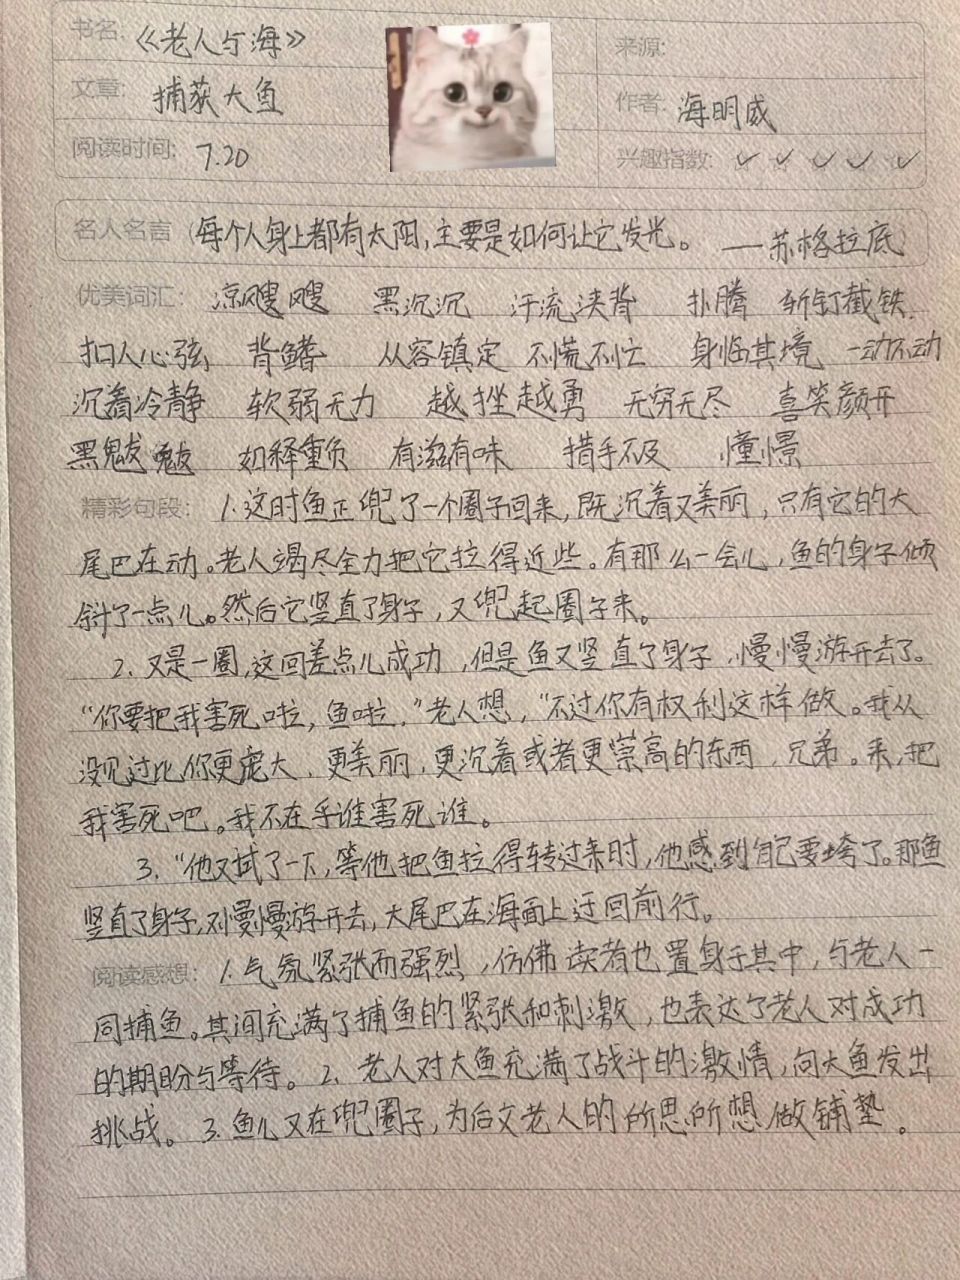 书名:《老人与海》
来源:
文章: 捕获大鱼
作者: 海明威
阅读时间: 7.20
兴趣指数: ✓ ✓ ✓ ✓ ✓
名人名言(每个人身上都有太阳,主要是如何让它发光。 ——苏格拉底
优美词汇: 凉飕飕 黑沉沉 汗流浃背 扑腾 斩钉截铁
扣人心弦 背鳍 从容镇定 不慌不忙 身临其境 一动不动
沉着冷静 软弱无力 越挫越勇 无穷无尽 喜笑颜开
黑魆魆 如释重负 有滋有味 措手不及 憧憬
精彩句段: 1.这时鱼正兜了一个圈子回来,既沉着又美丽,只有它的大
尾巴在动。老人竭尽全力把它拉得近些。有那么一会儿,鱼的身子倾
斜了一点儿。然后它竖直了身子,又兜起圈子来。
2.又是一圈,这回差点儿成功,但是鱼又竖直了身子,慢慢游开去了。
“你要把我害死啦,鱼啦,”老人想,“不过你有权利这样做。我从
没见过比你更庞大、更美丽,更沉着或者更崇高的东西,兄弟。来,把
我害死吧。我不在乎谁害死谁。
3.“他又试了一下,等他把鱼拉得转过来时,他感到自己要垮了。那鱼
竖直了身子,又慢慢游开去,大尾巴在海面上迂回前行。
阅读感想: 1.气氛紧张而强烈,仿佛读者也置身于其中,与老人一
同捕鱼。其间充满了捕鱼的紧张和刺激,也表达了老人对成功
的期盼与等待。2.老人对大鱼充满了战斗的激情,向大鱼发出
挑战。3.鱼儿又在兜圈子,为后文老人的所思所想做铺垫。